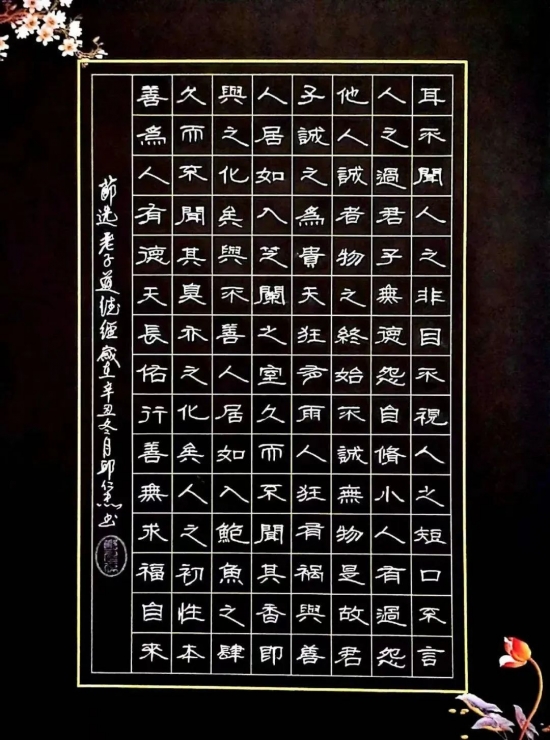 耳不聞人之非目不視人之短口不言
人之過君子無德怨自脩小人有過怨
他人誠者物之終始不誠無物是故君
子誠之為貴天狂多雨人狂有禍與善
人居如入芝蘭之室久而不聞其香即
與之化矣與不善人居如入鮑魚之肆
久而不聞其臭亦之化矣人之初性本
善為人有德天長佑行善無求福自來
節选老子道德經歲在辛丑冬月邱书